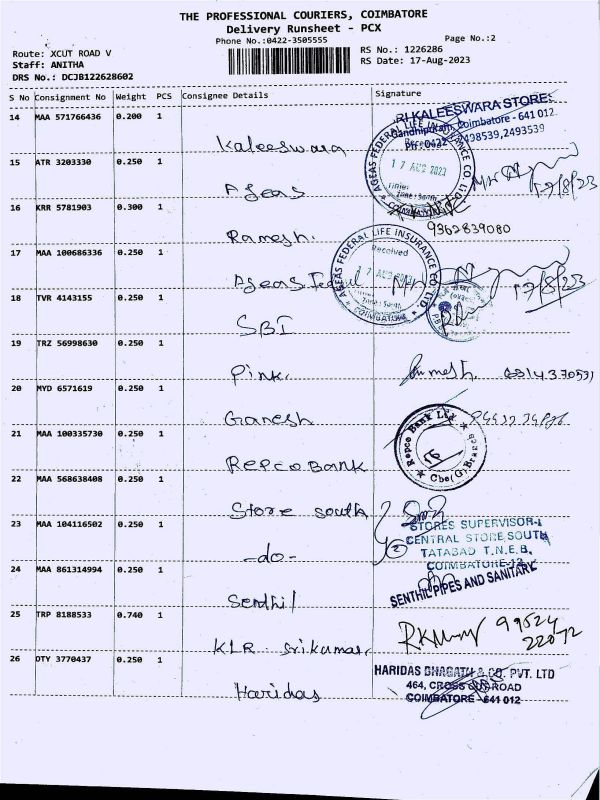 THE PROFESSIONAL COURIERS, COIMBATORE
Delivery Runsheet - PCX
Phone No.:0422-3505555 Page No.:2
Route: XCUT ROAD V RS No.: 1226286
Staff: ANITHA RS Date: 17-Aug-2023
DRS No.: DCJB122628602
S No Consignment No Weight PCS Consignee Details Signature
14 MAA 571766436 0.200 1 Kaleeswara
RI KALEESWARA STORES
Gandhipuram, Coimbatore - 641 012.
Ph: 0422 - 2498539,2493539
15 ATR 3203330 0.250 1 Ageas
AGEAS FEDERAL LIFE INSURANCE CO. LTD.
17 AUG 2023
COIMBATORE
17/8/23
16 KRR 5781903 0.300 1 Ramesh.
9362839080
17 MAA 100686336 0.250 1 Ageas Federal
AGEAS FEDERAL LIFE INSURANCE CO. LTD
Received
17 AUG 2023
COIMBATORE
17/8/23
18 TVR 4143155 0.250 1 SBI
19 TRZ 56998630 0.250 1 Pink.
20 MYD 6571619 0.250 1 Ganesh
21 MAA 100335730 0.250 1 REPCO BANK
Repco Bank Ltd
Cbe(G)Branch
22 MAA 568638408 0.250 1 Store south
STORES SUPERVISOR-I
CENTRAL STORE, SOUTH
TATABAD T.N.E.B.
COIMBATORE-12
23 MAA 104116502 0.250 1 -do-
24 MAA 861314994 0.250 1 Senthil
SENTHIL PIPES AND SANITARY
25 TRP 8188533 0.740 1 KLR Srikumar,
99524
22072
26 DTY 3770437 0.250 1 Haridas
HARIDAS BHAGATH & CO. PVT. LTD
464, CROSS CUT ROAD
COIMBATORE - 641 012